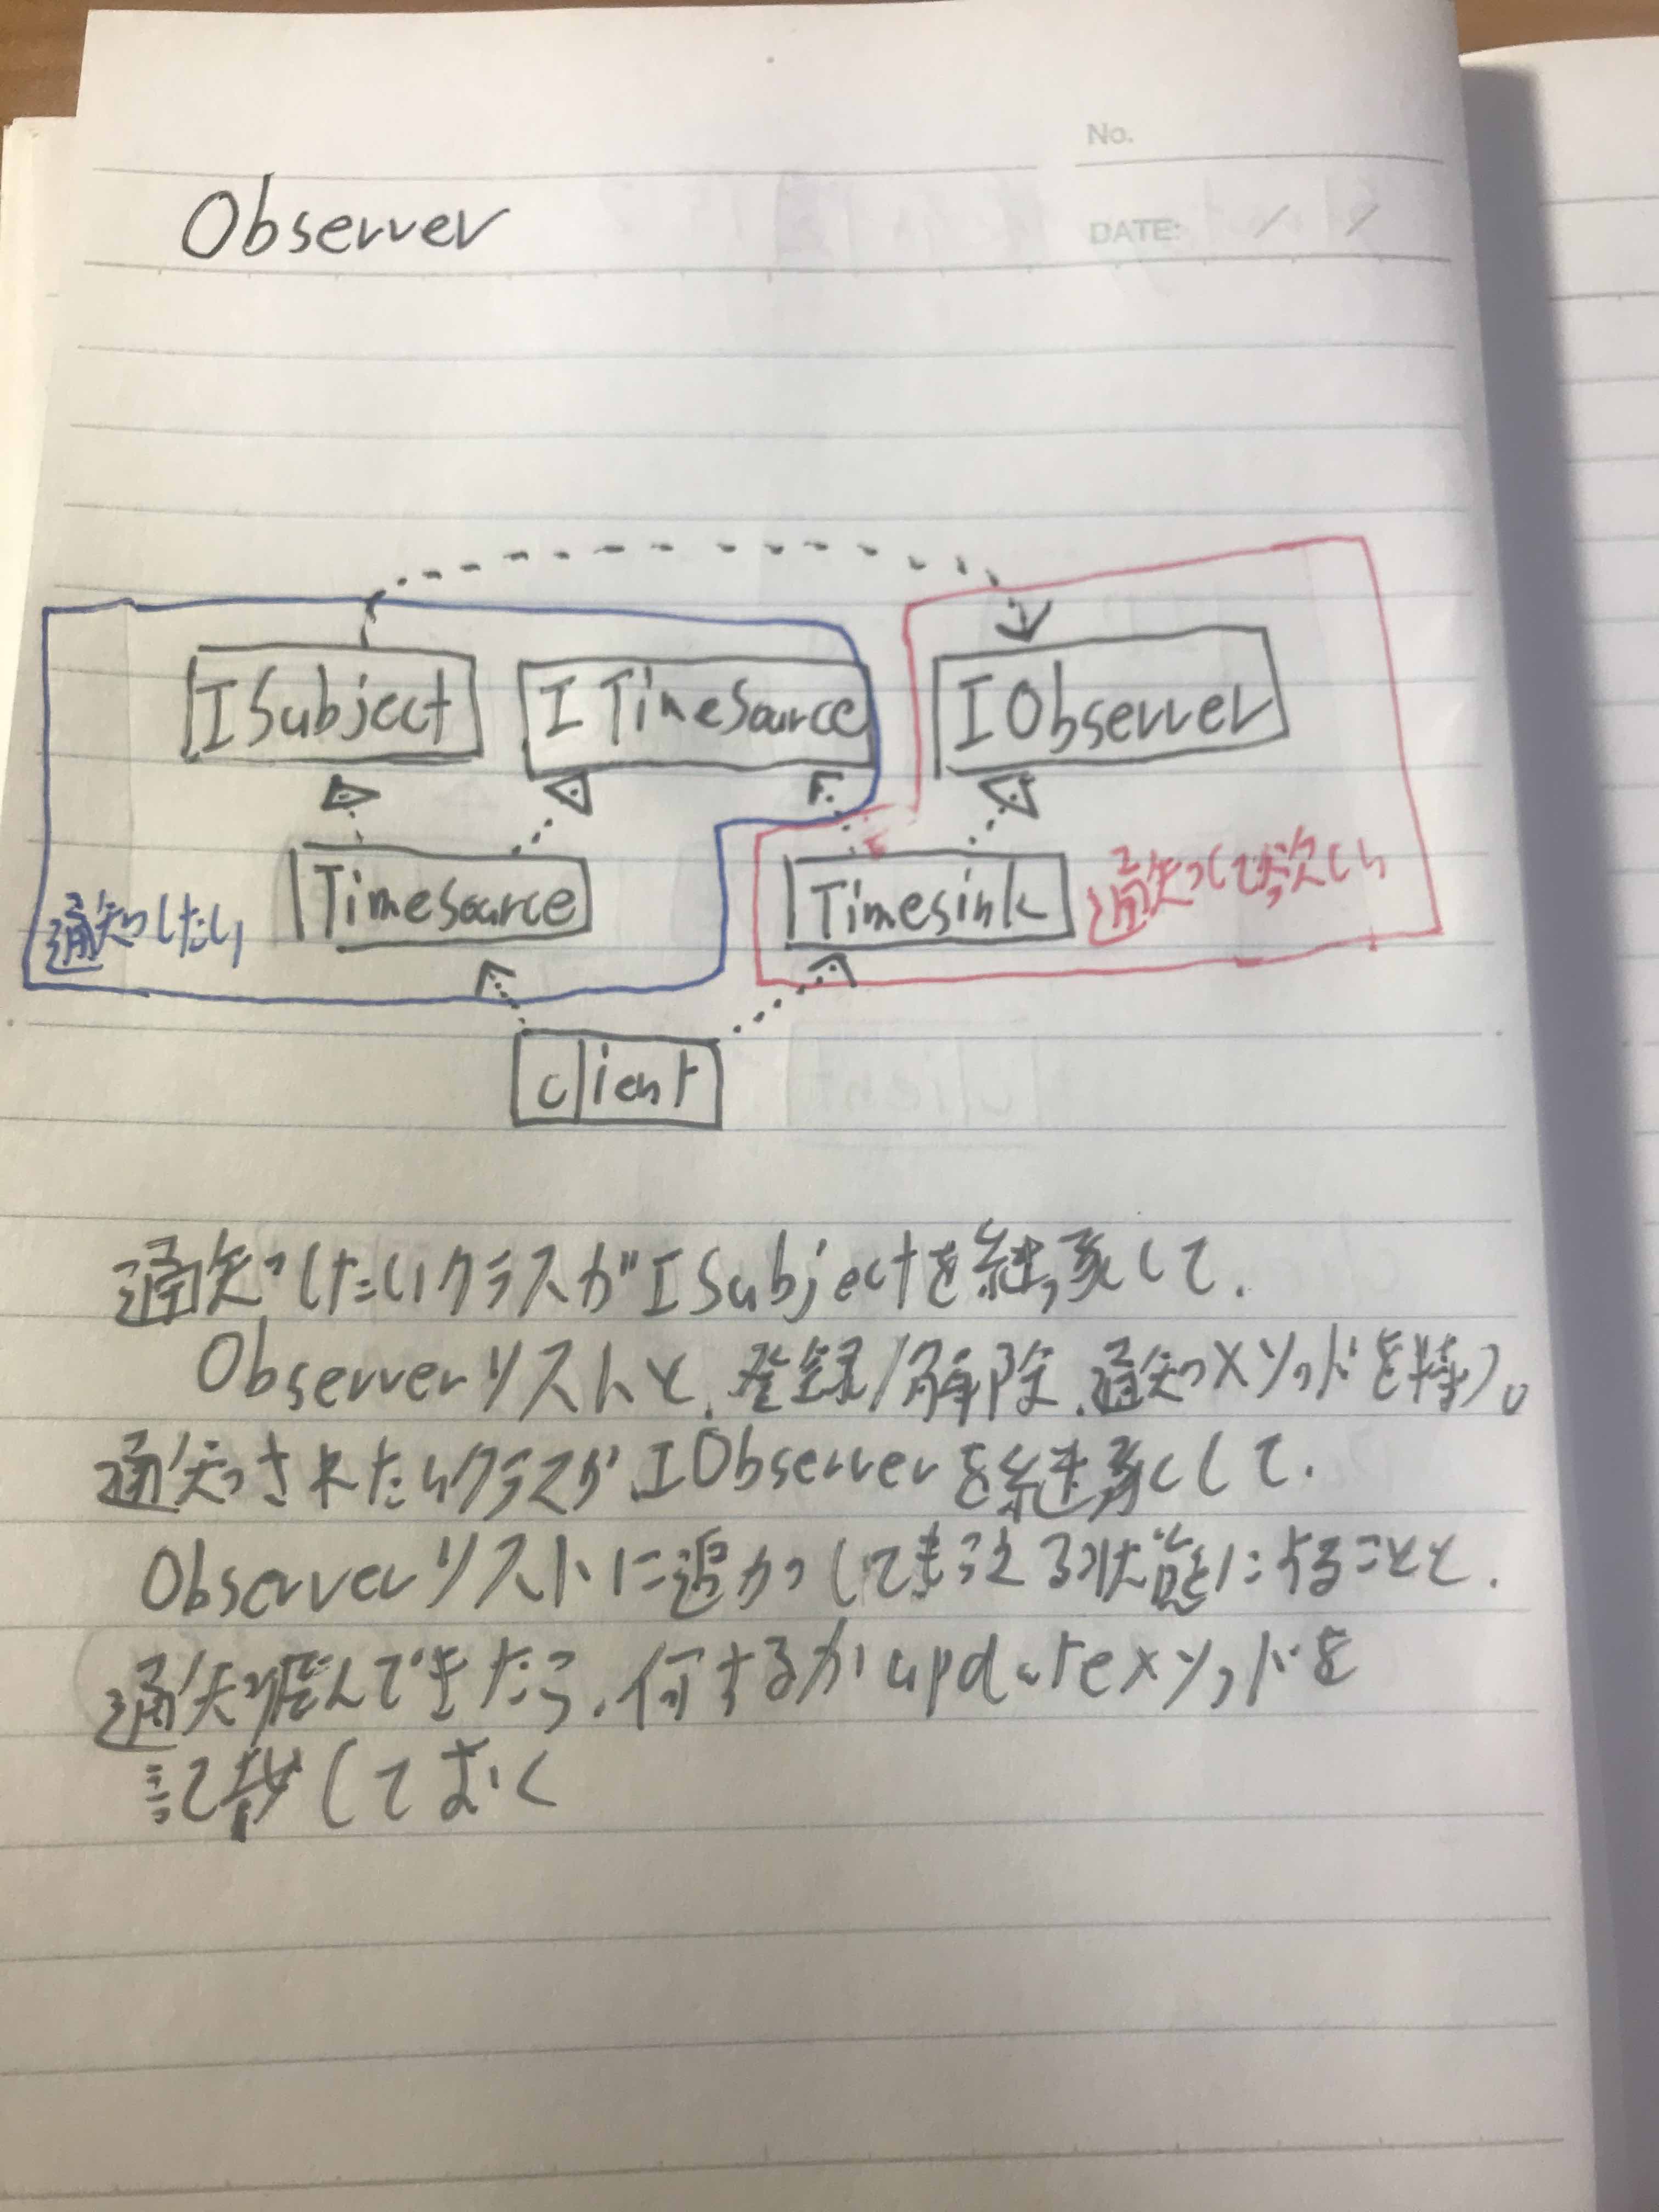 No.
DATE: / /
Observer
ISubject
ITimeSource
IObserver
TimeSource
Timesink
通知したい
通知して欲しい
client
通知したいクラスがISubjectを継承して、
Observerリストと、登録/解除、通知メソッドを持つ。
通知されたいクラスが、IObserverを継承して、
Observerリストに追加してもらえる状態にすることと、
通知飛んできたら、何するかupdateメソッドを
記載しておく